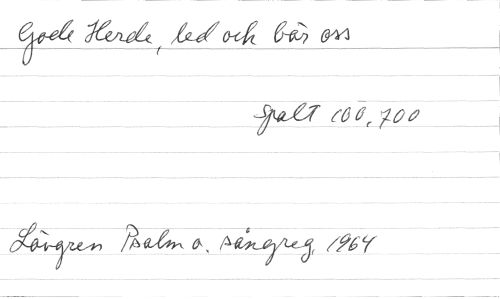 Gode Herde, led och bär oss
spalt 100, 700
Lövgren Psalm o. sångreg. 1964